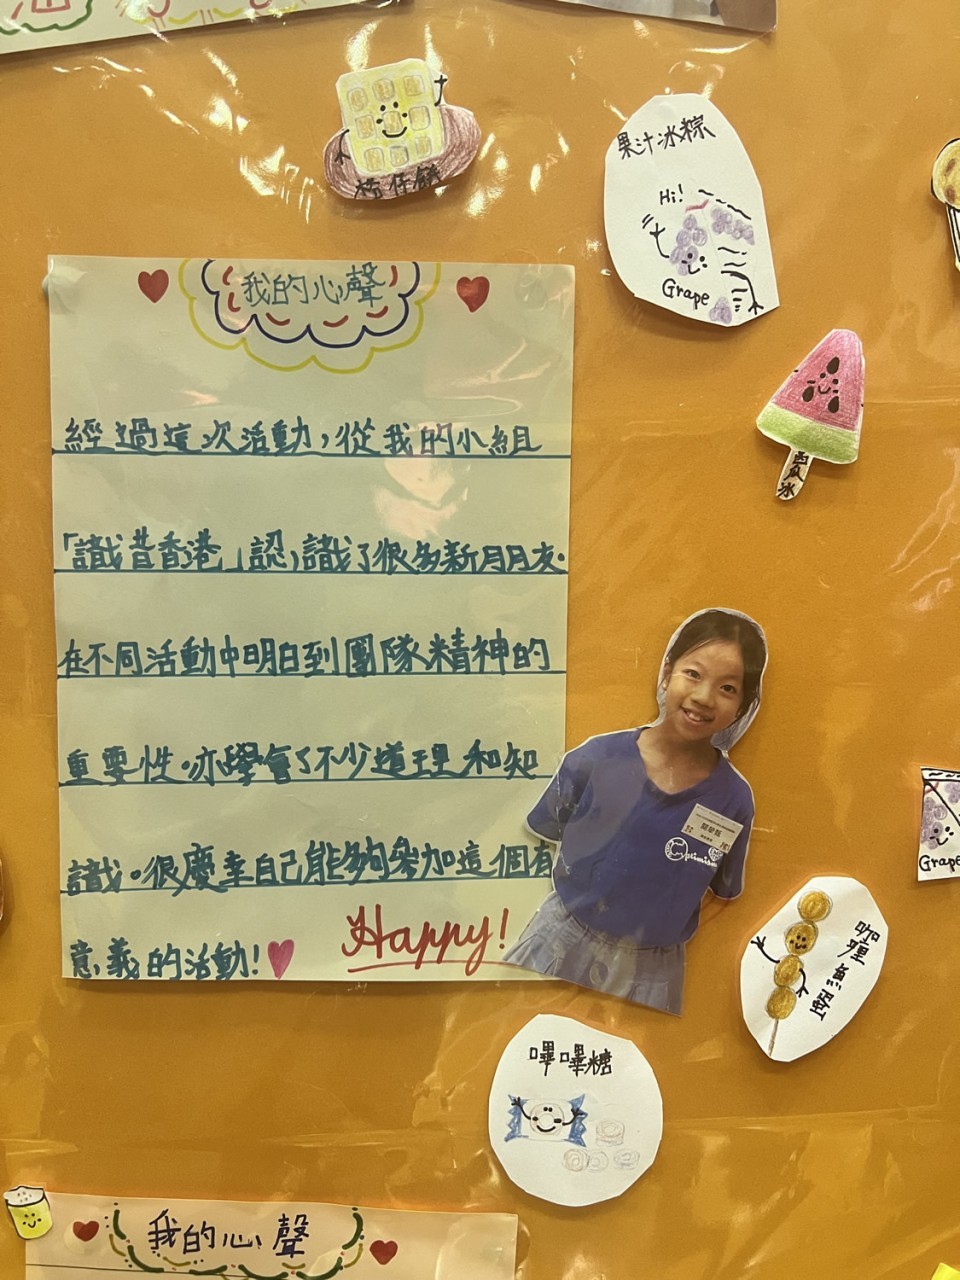 果汁冰粽
Hi!
Grape
我的心聲
經過這次活動，從我的小組
「識昔香港」認識了很多新朋友.
在不同活動中明白到團隊精神的
重要性.亦學會了不少道理和知
識。很慶幸自己能夠參加這個有
意義的活動!
Happy!
西瓜冰
Optimism
Grape
咖喱魚蛋
嗶嗶糖
我的心聲